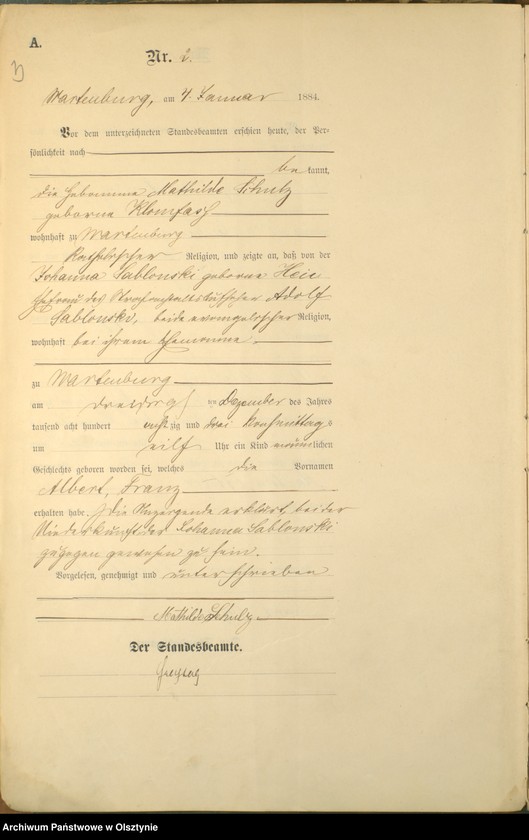 A.
Nr. 2.
Wartenburg, am 4 Januar 1884.
Vor dem unterzeichneten Standesbeamten erschien heute, der Per-
sönlichkeit nach
be kannt,
die Hebamme Mathilde Schulz
geborne Klomfass
wohnhaft zu Wartenburg
katholischer Religion, und zeigte an, daß von der
Johanna Sablonski geborne Hein
Ehefrau des Adolf
Sablonski, beide evangelischer Religion,
wohnhaft bei ihrem Ehemanne
zu Wartenburg
am ten Dezember des Jahres
tausend acht hundert acht zig und drei Nachmittags
um eilf Uhr ein Kind männlichen
Geschlechts geboren worden sei, welches die Vornamen
Albert, Franz
erhalten habe. Die Anzeigende erklärt, bei der
Niederkunft der Johanna Sablonski
zugegen gewesen zu sein.
Vorgelesen, genehmigt und unterschrieben
Mathilde Schulz
Der Standesbeamte.
Archiwum Państwowe w Olsztynie